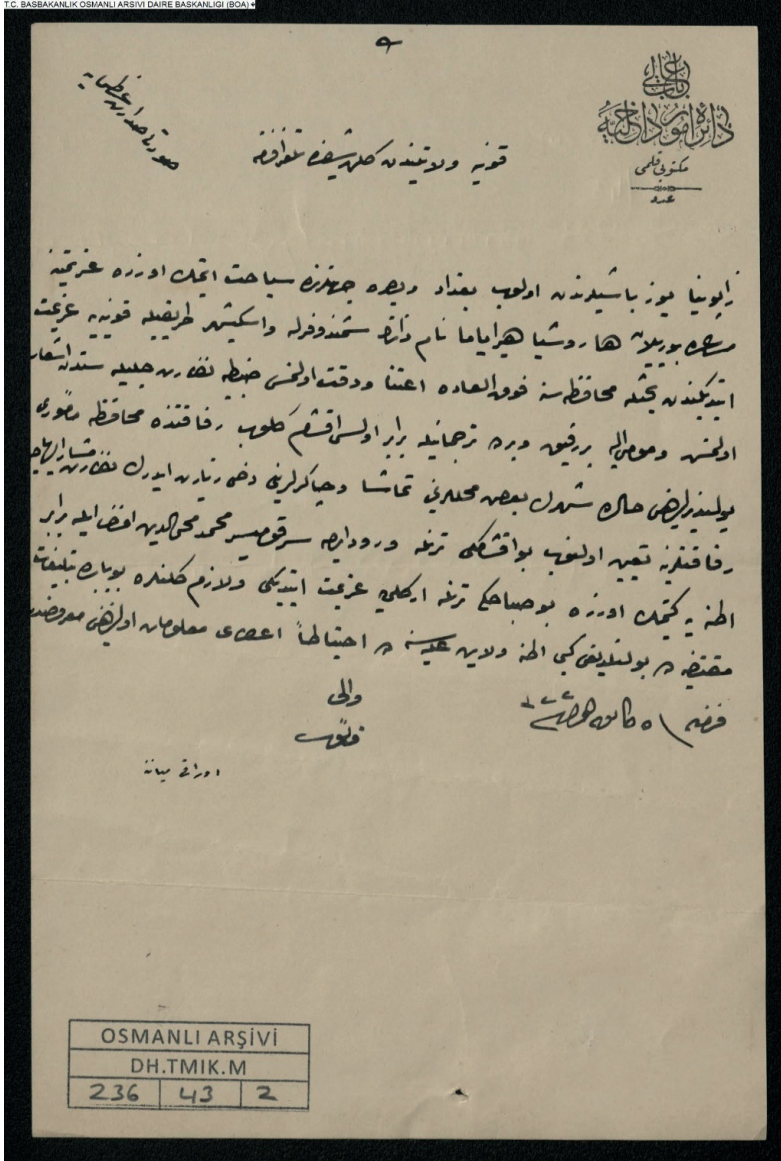 T.C. BASBAKANLIK OSMANLI ARSIVI DAIRE BASKANLIGI (BOA)
٩
باب عالی
دائرهٔ امور داخلیه
مکتوبی قلمی
عدد
صورتی
قونیه ولایتندن کلن شفره تلغرافنامه
ژاپونیا یوزباشیلرندن اولوب بغداد وبصره جهتلرنه سیاحت ایتمك اوزره عزیمت
نام ذات شمندوفرله واسکیشهر طریقیله قونیه‌یه عزیمت
ایتدیکندن بحثله محافظه‌سنه فوق العاده اعتنا ودقت اولنمسی ضبطیه نظارت جلیله‌سندن اشعار
اولنمش ومومی الیه بر رفیق وبر ترجمانیله برابر اولسی اقشام کلوب رفاقتنده محافظه مأموری
بعض محللرینی تماشا دخی زیارت ایدرك نظارت مشار الیهاجه
رفاقتلرینه تعیین اولنوب بو اقشامکی ترنله ورود ایدن سرقومیسر محمد محی الدین افندی ایله برابر
اطنه‌یه کیتمك اوزره بو صباحکی ترنله ارکلی‌یه عزیمت ایتدیکی ولازم کلنلره بو بابده تبلیغات
مقتضیه ده بولنلدیغی کبی اطنه ولایت علیه‌سنه ده احتیاطاً اعطای معلومات اولندیغی معروضدر
والی
اوراقی میاننه
OSMANLI ARŞİVİ
DH.TMIK.M
236 43 2